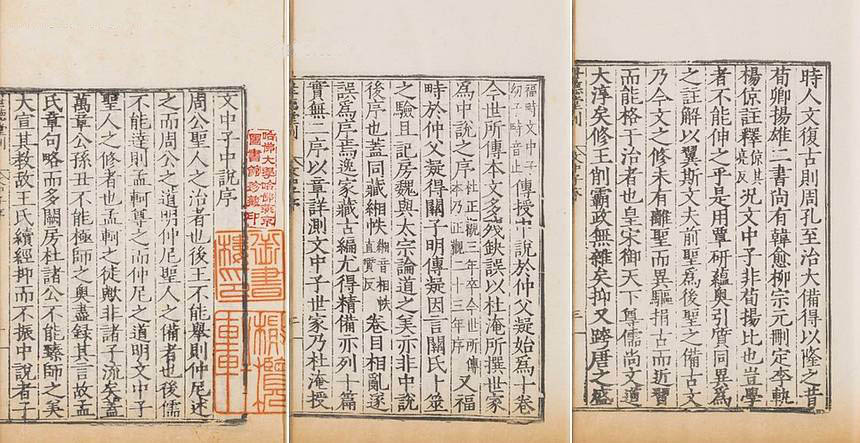 文中子中說序
周公聖人之治者也後王不能舉則仲尼述
之而周公之道明仲尼聖人之備者也後儒
不能達則孟軻尊之而仲尼之道明文中子
聖人之修者也孟軻之徒歟非諸子流矣蓋
萬章公孫丑不能極師之奧盡録其言故孟
氏章句略而多闕房杜諸公不能臻師之美
大宣其教故王氏續經抑而不振中說者子
哈佛大學哈佛燕京
圖書館珍藏印
福畤文中子幼子畤音止傳授中說於仲父凝始爲十卷
今世所傳本文多殘缺誤以杜淹所撰世家
爲中說之序杜正觀三年卒今世所傳本乃正觀二十三年序又福
畤於仲父凝得關子明傳凝因言關氏卜筮
之驗且記房魏與太宗論道之美亦非中說
後序也蓋同藏緗帙緗音相帙直質反卷目相亂遂
誤爲序焉逸家藏古編尤得精備亦列十篇
實無二序以章詳測文中子世家乃杜淹授
時人文復古則周孔至治大備得以隆之昔
荀卿揚雄二書尚有韓愈柳宗元刪定李軌
楊倞註釋倞其亮反況文中子非荀揚比也豈學
者不能伸之乎是用覃研蘊奧引質同異爲
之註解以翼斯文夫前聖爲後聖之備古文
乃今文之修未有離聖而異驅捐古而近習
而能格于治者也皇宋御天下尊儒尚文道
大淳矣修王削霸政無雜矣抑又跨唐之盛